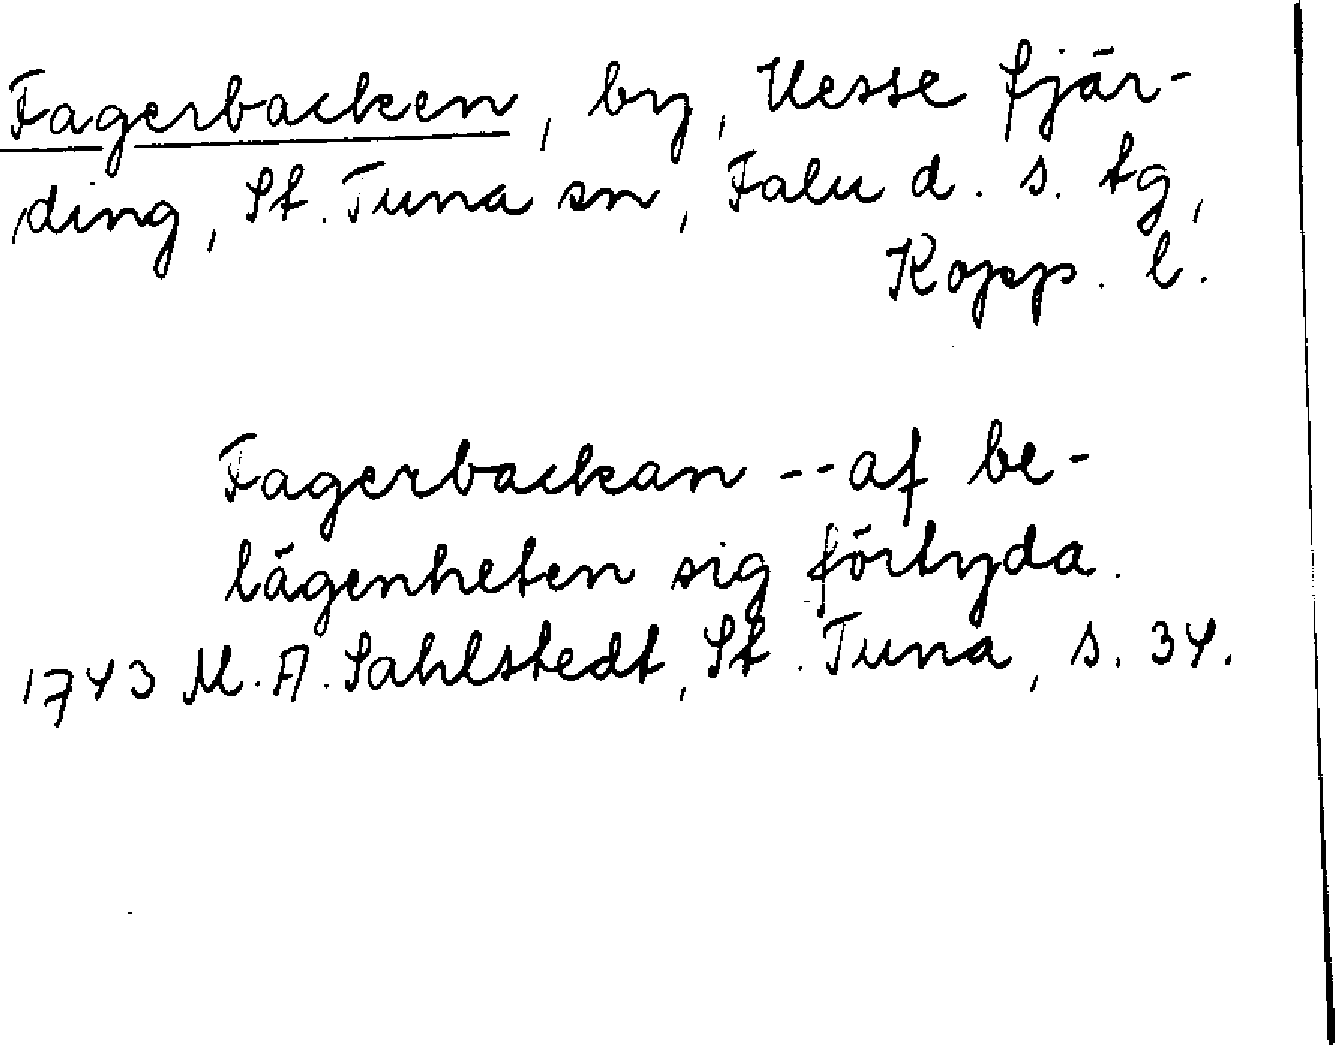 Fagerbacken, by, Uesse fjär-
ding, St. Tuna sn, Falu d. s. tg,
Kopp. l.
Fagerbackan -- af be-
lägenheten sig förtyda.
1743 M. A. Sahlstedt, St. Tuna, s. 34.